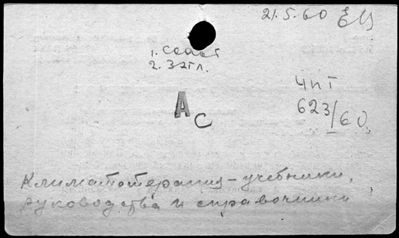 21.5.60 ЕЦ
1. сост
2. загл.
Чпт
623/60
Ас
Климатотерапия - учебники,
руководства и справочники